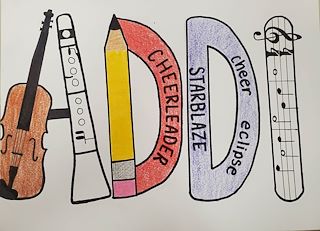 ADDI
CHEERLEADER
STARBLAZE
cheer eclipse